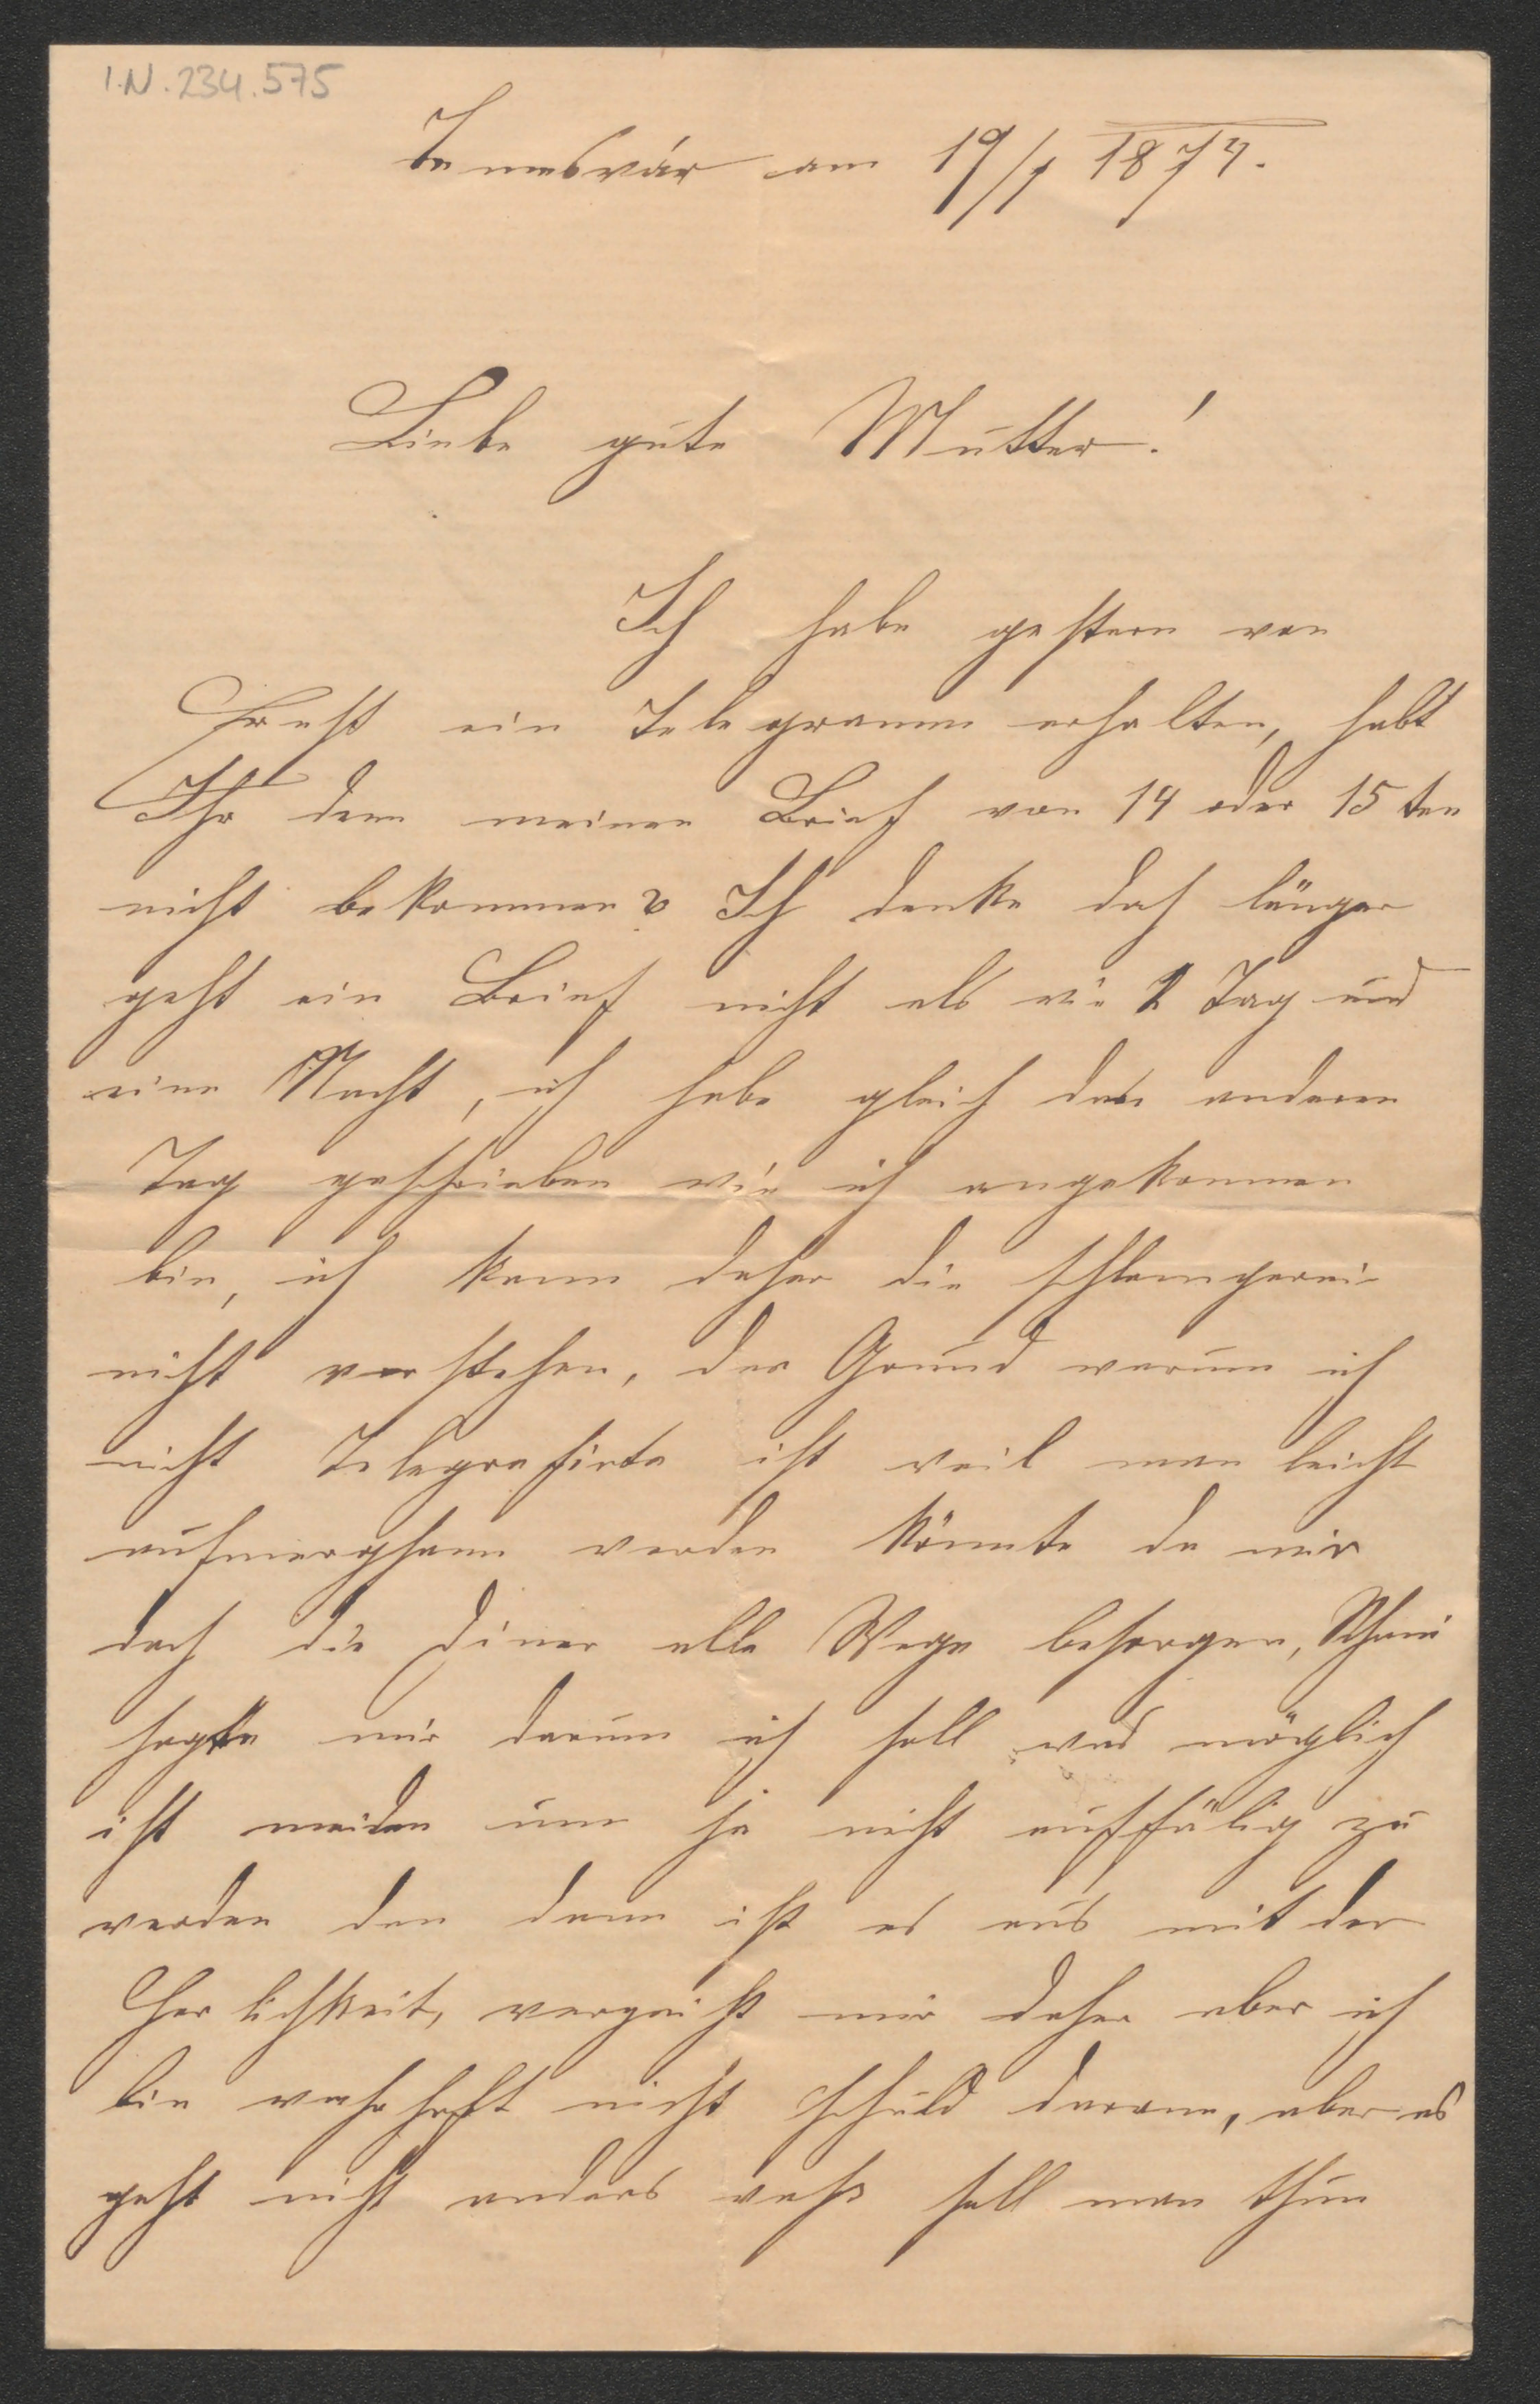 I.N. 234.575
Temesvár am 19/1 1874.
Liebe gute Mutter!
Ich habe gestern von
Ernst ein Telegramm erhalten, habt
Ihr denn meinen Brief von 14 oder 15ten
nicht bekommen? Ich denke das länger
geht ein Brief nicht als wie 2 Tag und
eine Nacht, ich habe gleich den anderen
Tag geschrieben wie ich angekommen
bin, ich kann daher die schlamperei
nicht verstehen, der Grund warum ich
nicht Telegrafirte ist weil man leicht
aufmerghsam werden könnte da mir
doch die Diner alle Wege besorgen,
sagte mir darum ich soll was möglich
ist meiden um ja nicht auffälig zu
werden den dann ist es aus mit der
Herlichkeit, verzeiht mir daher aber ich
bin wahrhaft nicht schuld daran, aber es
geht nicht anders waß soll man thun